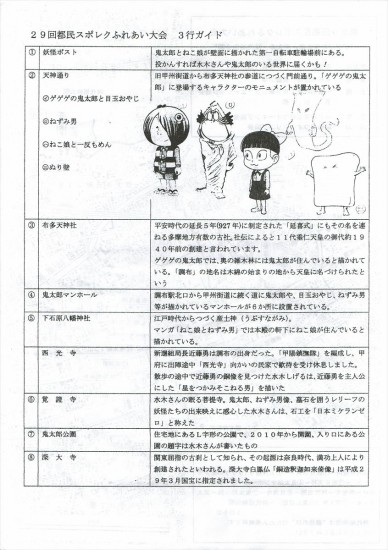 29回都民スポレクふれあい大会　3行ガイド
① 妖怪ポスト
鬼太郎とねこ娘が壁面に描かれた第一自転車駐輪場前にある。
投かんすれば水木さんや鬼太郎のいる世界に届くかも！
② 天神通り
旧甲州街道から布多天神社の参道につづく門前通り。「ゲゲゲの鬼
太郎」に登場するキャラクターのモニュメントが置かれている
ゲゲゲの鬼太郎と目玉おやじ
ねずみ男
ねこ娘と一反もめん
ぬり壁
③ 布多天神社
平安時代の延長5年(927年)に制定された「延喜式」にもその名を連
ねる多摩地方有数の古社。社伝によると11代垂仁天皇の御代約19
40年前の創建と言われています。
ゲゲゲの鬼太郎では、奥の雑木林には鬼太郎が住んでいると描かれて
いる。「調布」の地名は木綿の始まりの地から天皇に名づけられたと
いう
④ 鬼太郎マンホール
調布駅北口から甲州街道に続く道に鬼太郎や、目玉おやじ、ねずみ男
等が描かれているマンホールが6か所に設置されている。
⑤ 下石原八幡神社
江戸時代からつづく産土神（うぶすながみ）。
マンガ「ねこ娘とねずみ男」では本殿の軒下にねこ娘が住んでいると
描かれている。
西光寺
新選組局長近藤勇は調布の出身だった。「甲陽鎮撫隊」を編成し、甲
府に出陣途中「西光寺」向かいの民家で歓待を受け休息しました。
散歩の途中で近藤勇の銅像を見つけた水木しげるは、近藤勇を主人公
にした「星をつかみそこねる男」を描いた
⑥ 覚證寺
水木さんの眠る菩提寺。鬼太郎、ねずみ男像、墓石を囲うレリーフの
妖怪たちの出来映えに感心した水木さんは、石工を「日本ミケランゼ
ロ」と称えた
⑦ 鬼太郎公園
住宅地にあるL字形の公園で、2010年から開園。入り口にある公
園の題字は水木さんが書いたもの
⑧ 深大寺
関東屈指の古刹として知られ、その起源は奈良時代、満功上人により
創建されたといわれる。深大寺白鳳仏「銅造釈迦如来倚像」は平成2
9年3月国宝に指定されました。